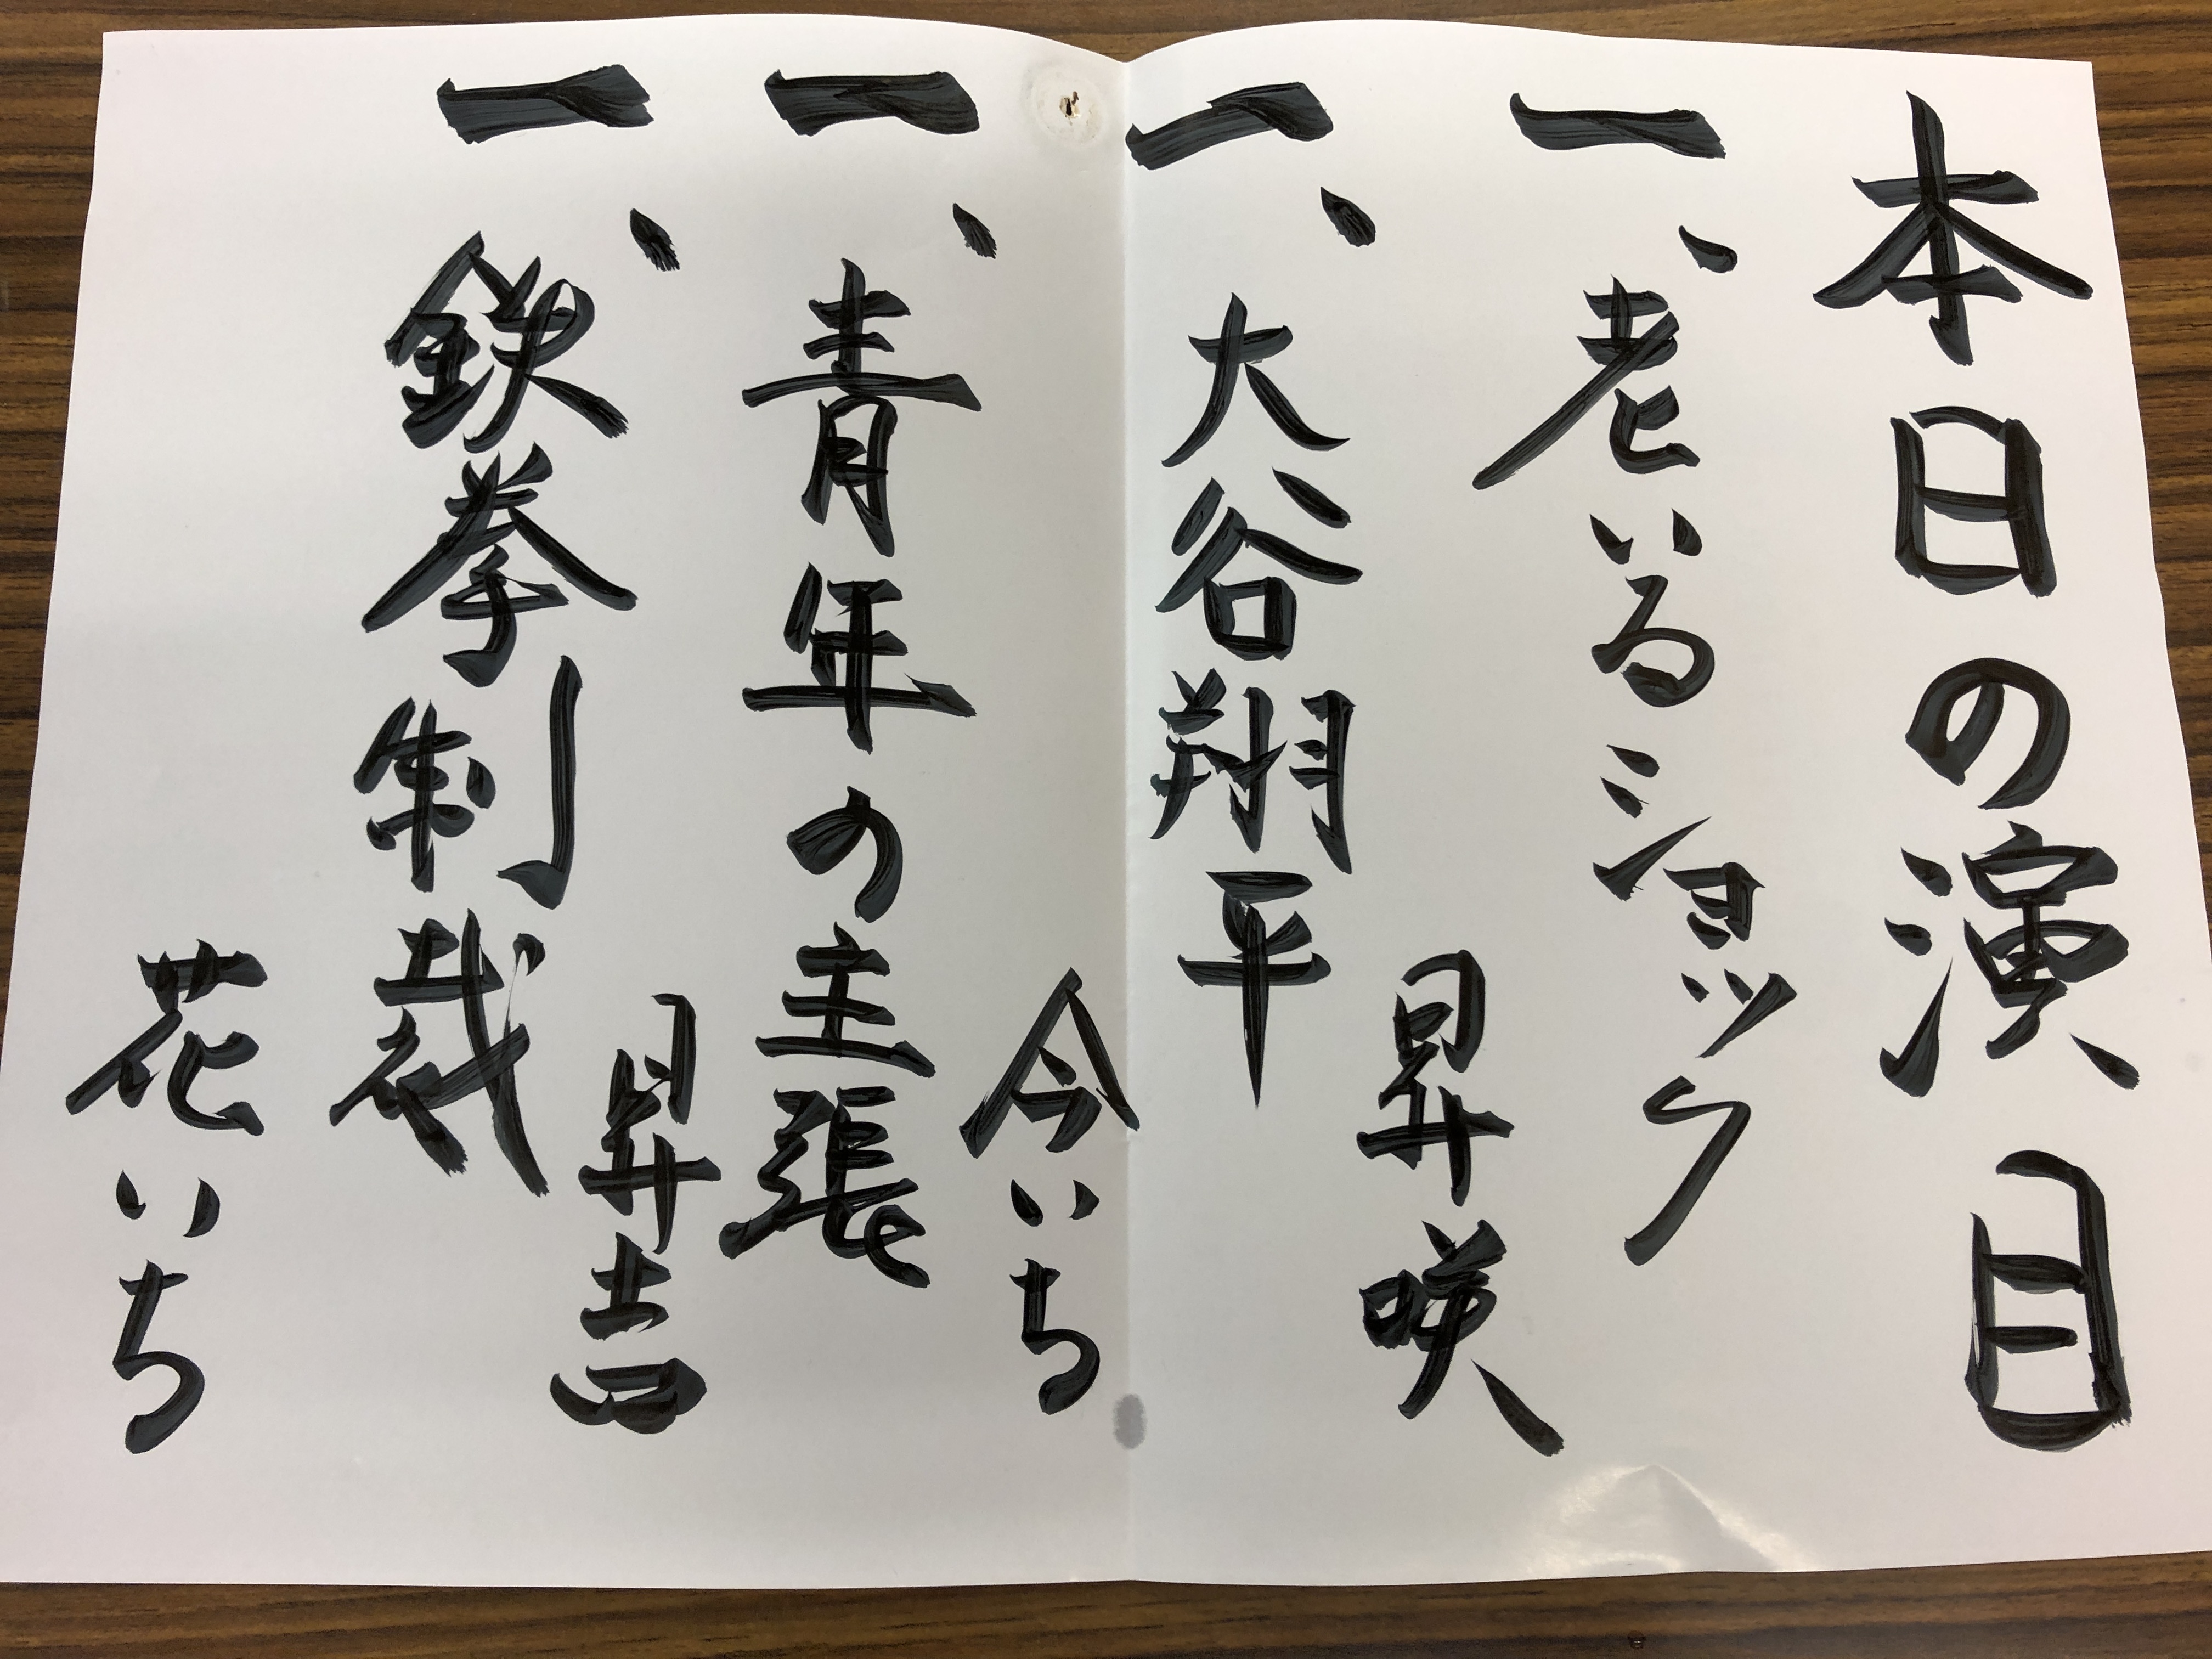 本日の演目
一、老いるショック
昇咲
一、大谷翔平
今いち
一、青年の主張
昇吉
一、鉄拳制裁
花いち